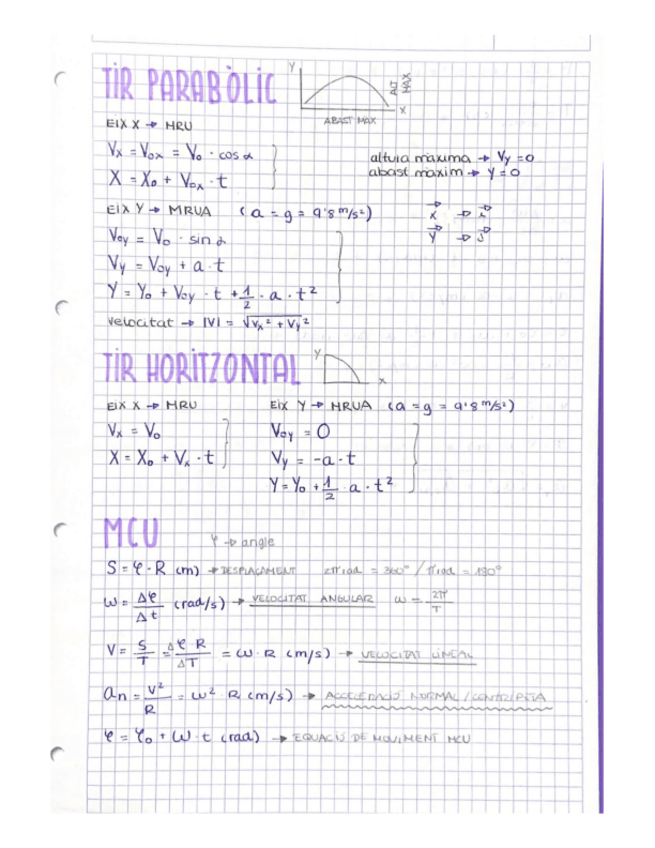 TIR PARABÒLIC
Y
X
ALT MAX
ABAST MAX
EIX X → MRU
Vx = Vox = Vo · cos α
X = Xo + Vox · t
altura màxima → Vy = 0
abast màxim → Y = 0
EIX Y → MRUA (a = g = 9'8 m/s²)
Voy = Vo · sin α
Vy = Voy + a · t
Y = Yo + Voy · t + 1/2 · a · t²
X → i
Y → j
velocitat → |V| = √Vx² + Vy²
TIR HORITZONTAL
Y
X
EIX X → MRU
Vx = Vo
X = Xo + Vx · t
EIX Y → MRUA (a = g = 9'8 m/s²)
Voy = 0
Vy = -a · t
Y = Yo + 1/2 · a · t²
MCU
φ → angle
S = φ · R (m) → DESPLAÇAMENT 2π rad = 360° / π rad = 180°
ω = Δφ/Δt (rad/s) → VELOCITAT ANGULAR ω = 2π/T
V = S/T = Δφ R/ΔT = ω · R (m/s) → VELOCITAT LINEAL
an = V²/R = ω² · R (m/s) → ACCELERACIÓ NORMAL/CENTRÍPETA
φ = φo + ω · t (rad) → EQUACIÓ DE MOVIMENT MCU